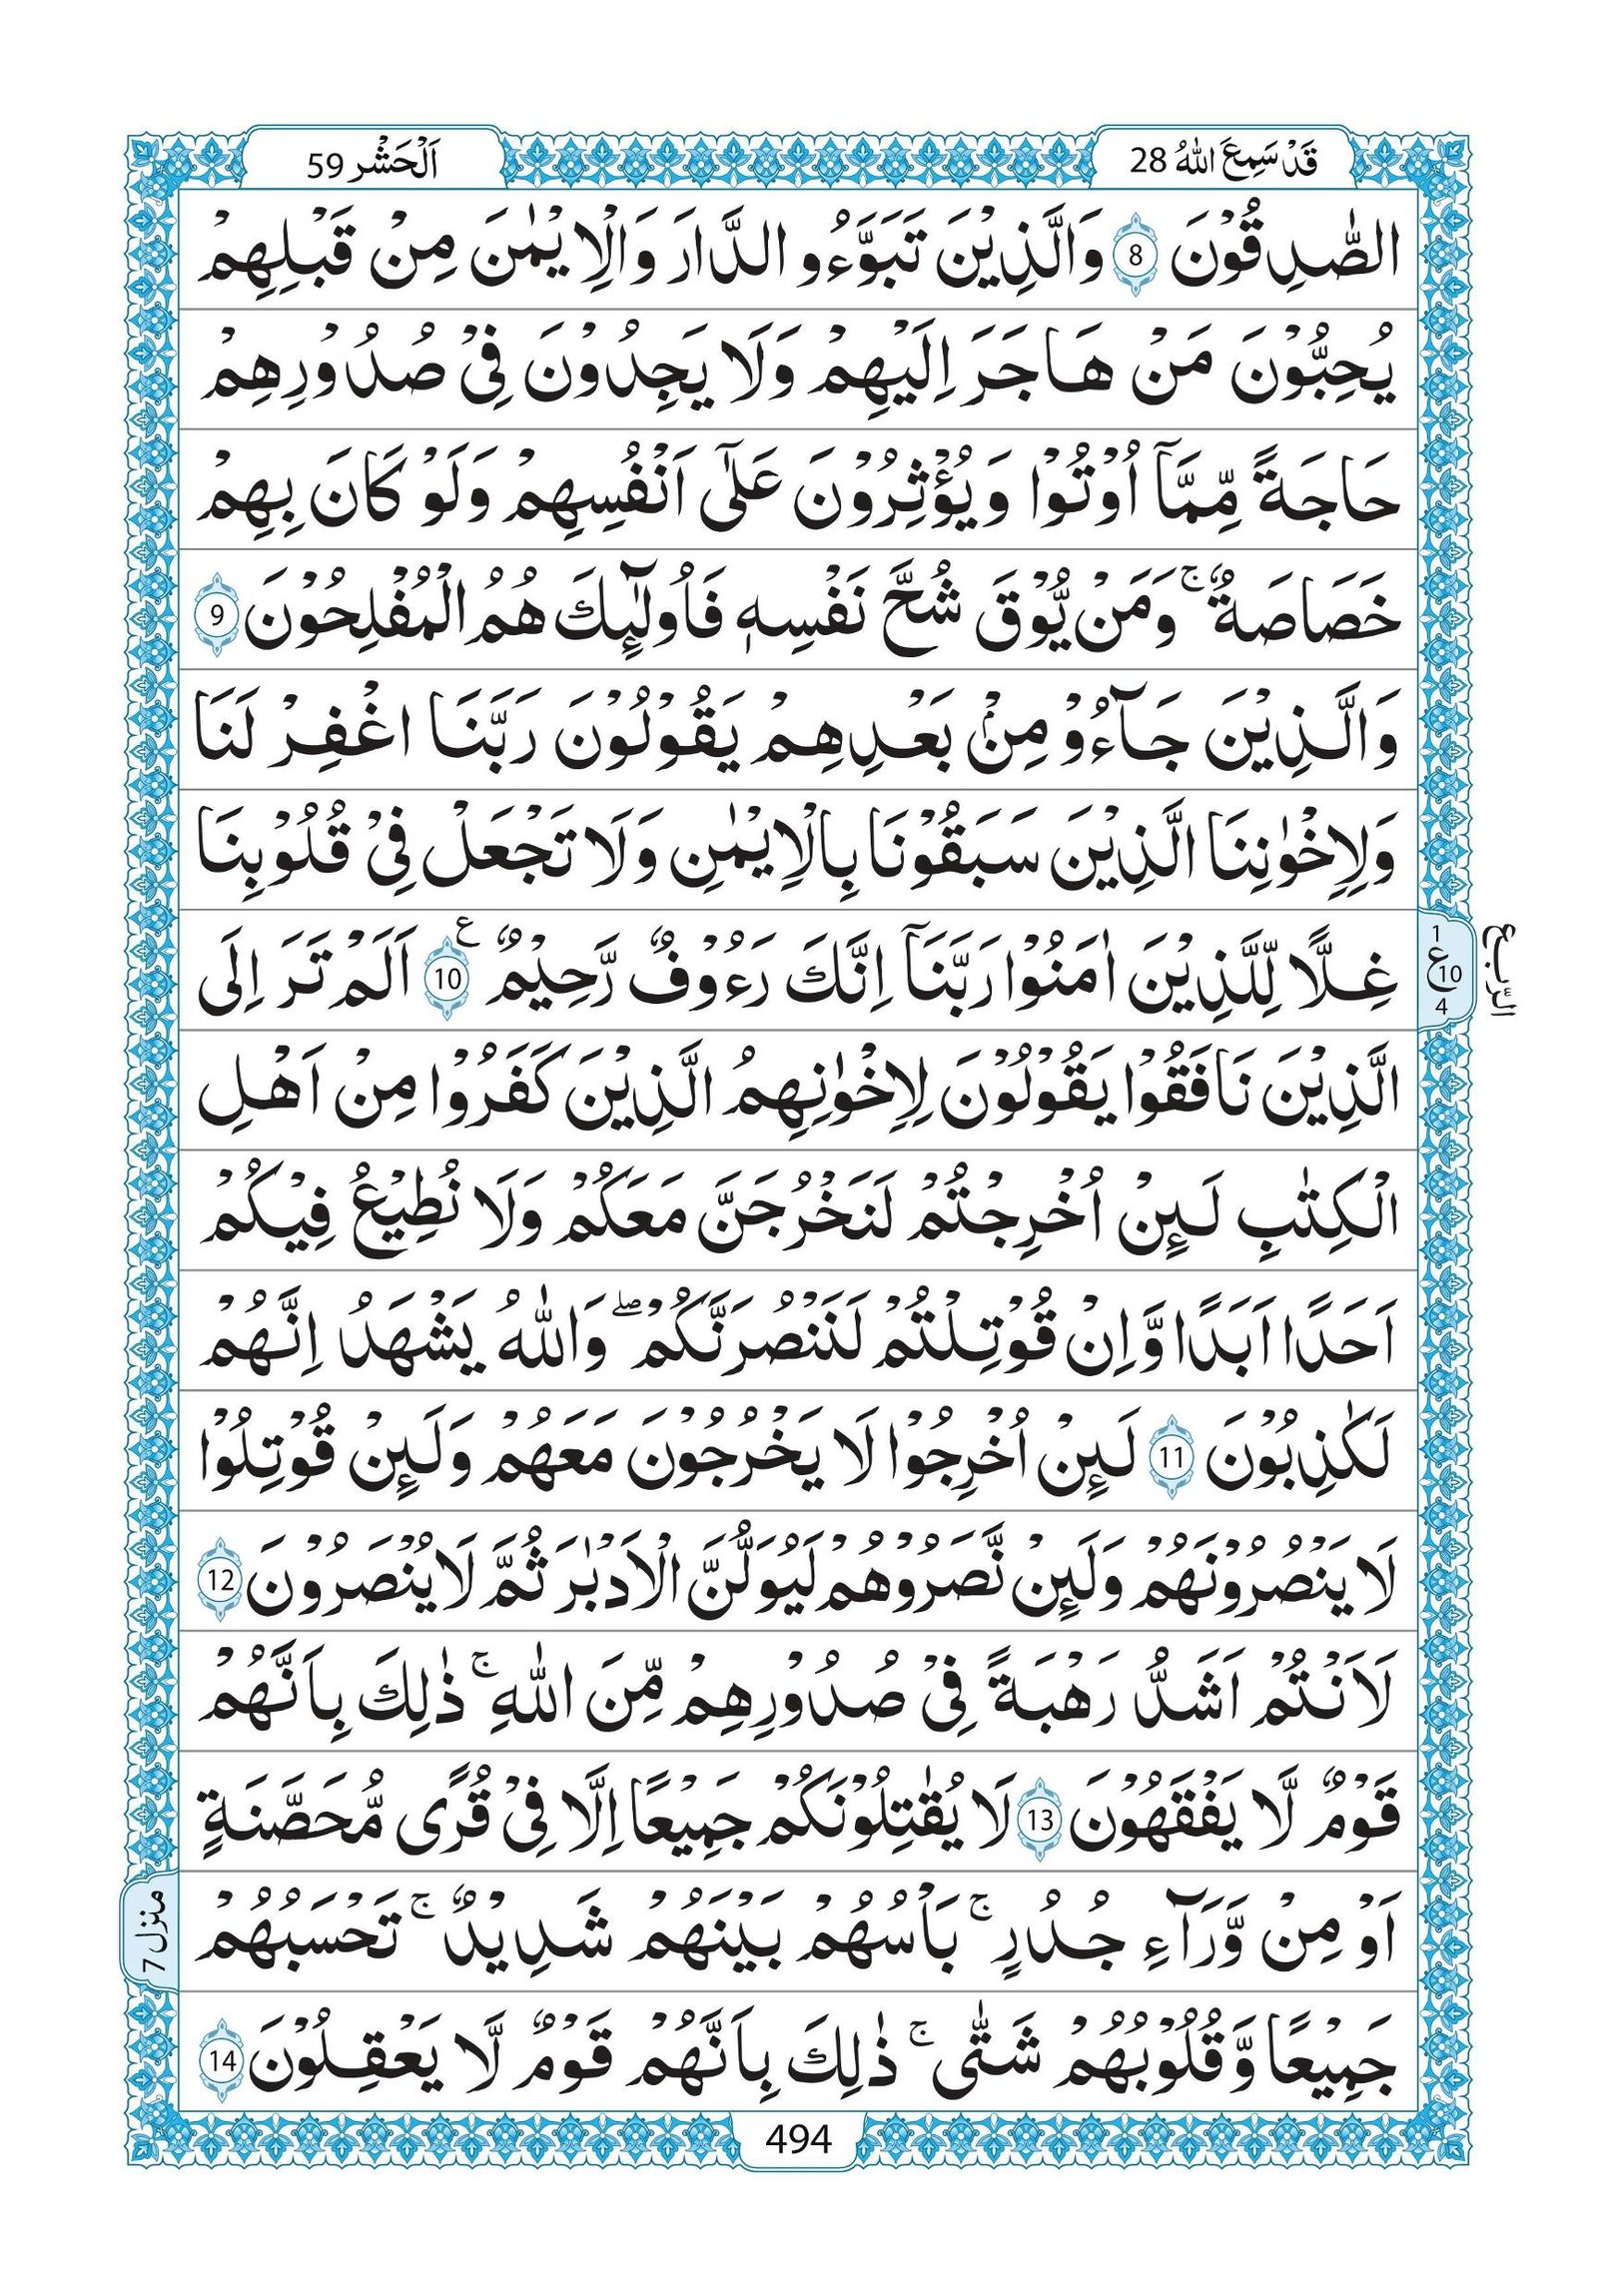 قَدْ سَمِعَ اللّٰهُ 28
اَلْحَشْر 59
الصّٰدِقُوْنَ 8 وَالَّذِيْنَ تَبَوَّءُو الدَّارَ وَالْاِيْمٰنَ مِنْ قَبْلِهِمْ
يُحِبُّوْنَ مَنْ هَاجَرَ اِلَيْهِمْ وَلَا يَجِدُوْنَ فِيْ صُدُوْرِهِمْ
حَاجَةً مِّمَّآ اُوْتُوْا وَيُؤْثِرُوْنَ عَلٰٓى اَنْفُسِهِمْ وَلَوْ كَانَ بِهِمْ
خَصَاصَةٌ ۚ وَمَنْ يُّوْقَ شُحَّ نَفْسِهٖ فَاُولٰٓئِكَ هُمُ الْمُفْلِحُوْنَ 9
وَالَّذِيْنَ جَآءُوْ مِنْۢ بَعْدِهِمْ يَقُوْلُوْنَ رَبَّنَا اغْفِرْ لَنَا
وَلِاِخْوٰنِنَا الَّذِيْنَ سَبَقُوْنَا بِالْاِيْمٰنِ وَلَا تَجْعَلْ فِيْ قُلُوْبِنَا
غِلًّا لِّلَّذِيْنَ اٰمَنُوْا رَبَّنَآ اِنَّكَ رَءُوْفٌ رَّحِيْمٌ 10 ع اَلَمْ تَرَ اِلَى
1
ع 10
4
الربع
الَّذِيْنَ نَافَقُوْا يَقُوْلُوْنَ لِاِخْوٰنِهِمُ الَّذِيْنَ كَفَرُوْا مِنْ اَهْلِ
الْكِتٰبِ لَئِنْ اُخْرِجْتُمْ لَنَخْرُجَنَّ مَعَكُمْ وَلَا نُطِيْعُ فِيْكُمْ
اَحَدًا اَبَدًا وَّاِنْ قُوْتِلْتُمْ لَنَنْصُرَنَّكُمْ ۖ وَاللّٰهُ يَشْهَدُ اِنَّهُمْ
لَكٰذِبُوْنَ 11 لَئِنْ اُخْرِجُوْا لَا يَخْرُجُوْنَ مَعَهُمْ وَلَئِنْ قُوْتِلُوْا
لَا يَنْصُرُوْنَهُمْ وَلَئِنْ نَّصَرُوْهُمْ لَيُوَلُّنَّ الْاَدْبٰرَ ثُمَّ لَا يُنْصَرُوْنَ 12
لَاَنْتُمْ اَشَدُّ رَهْبَةً فِيْ صُدُوْرِهِمْ مِّنَ اللّٰهِ ۚ ذٰلِكَ بِاَنَّهُمْ
قَوْمٌ لَّا يَفْقَهُوْنَ 13 لَا يُقٰتِلُوْنَكُمْ جَمِيْعًا اِلَّا فِيْ قُرًى مُّحَصَّنَةٍ
اَوْ مِنْ وَّرَآءِ جُدُرٍ ۚ بَاْسُهُمْ بَيْنَهُمْ شَدِيْدٌ ۚ تَحْسَبُهُمْ
منزل 7
جَمِيْعًا وَّقُلُوْبُهُمْ شَتّٰى ۚ ذٰلِكَ بِاَنَّهُمْ قَوْمٌ لَّا يَعْقِلُوْنَ 14
494